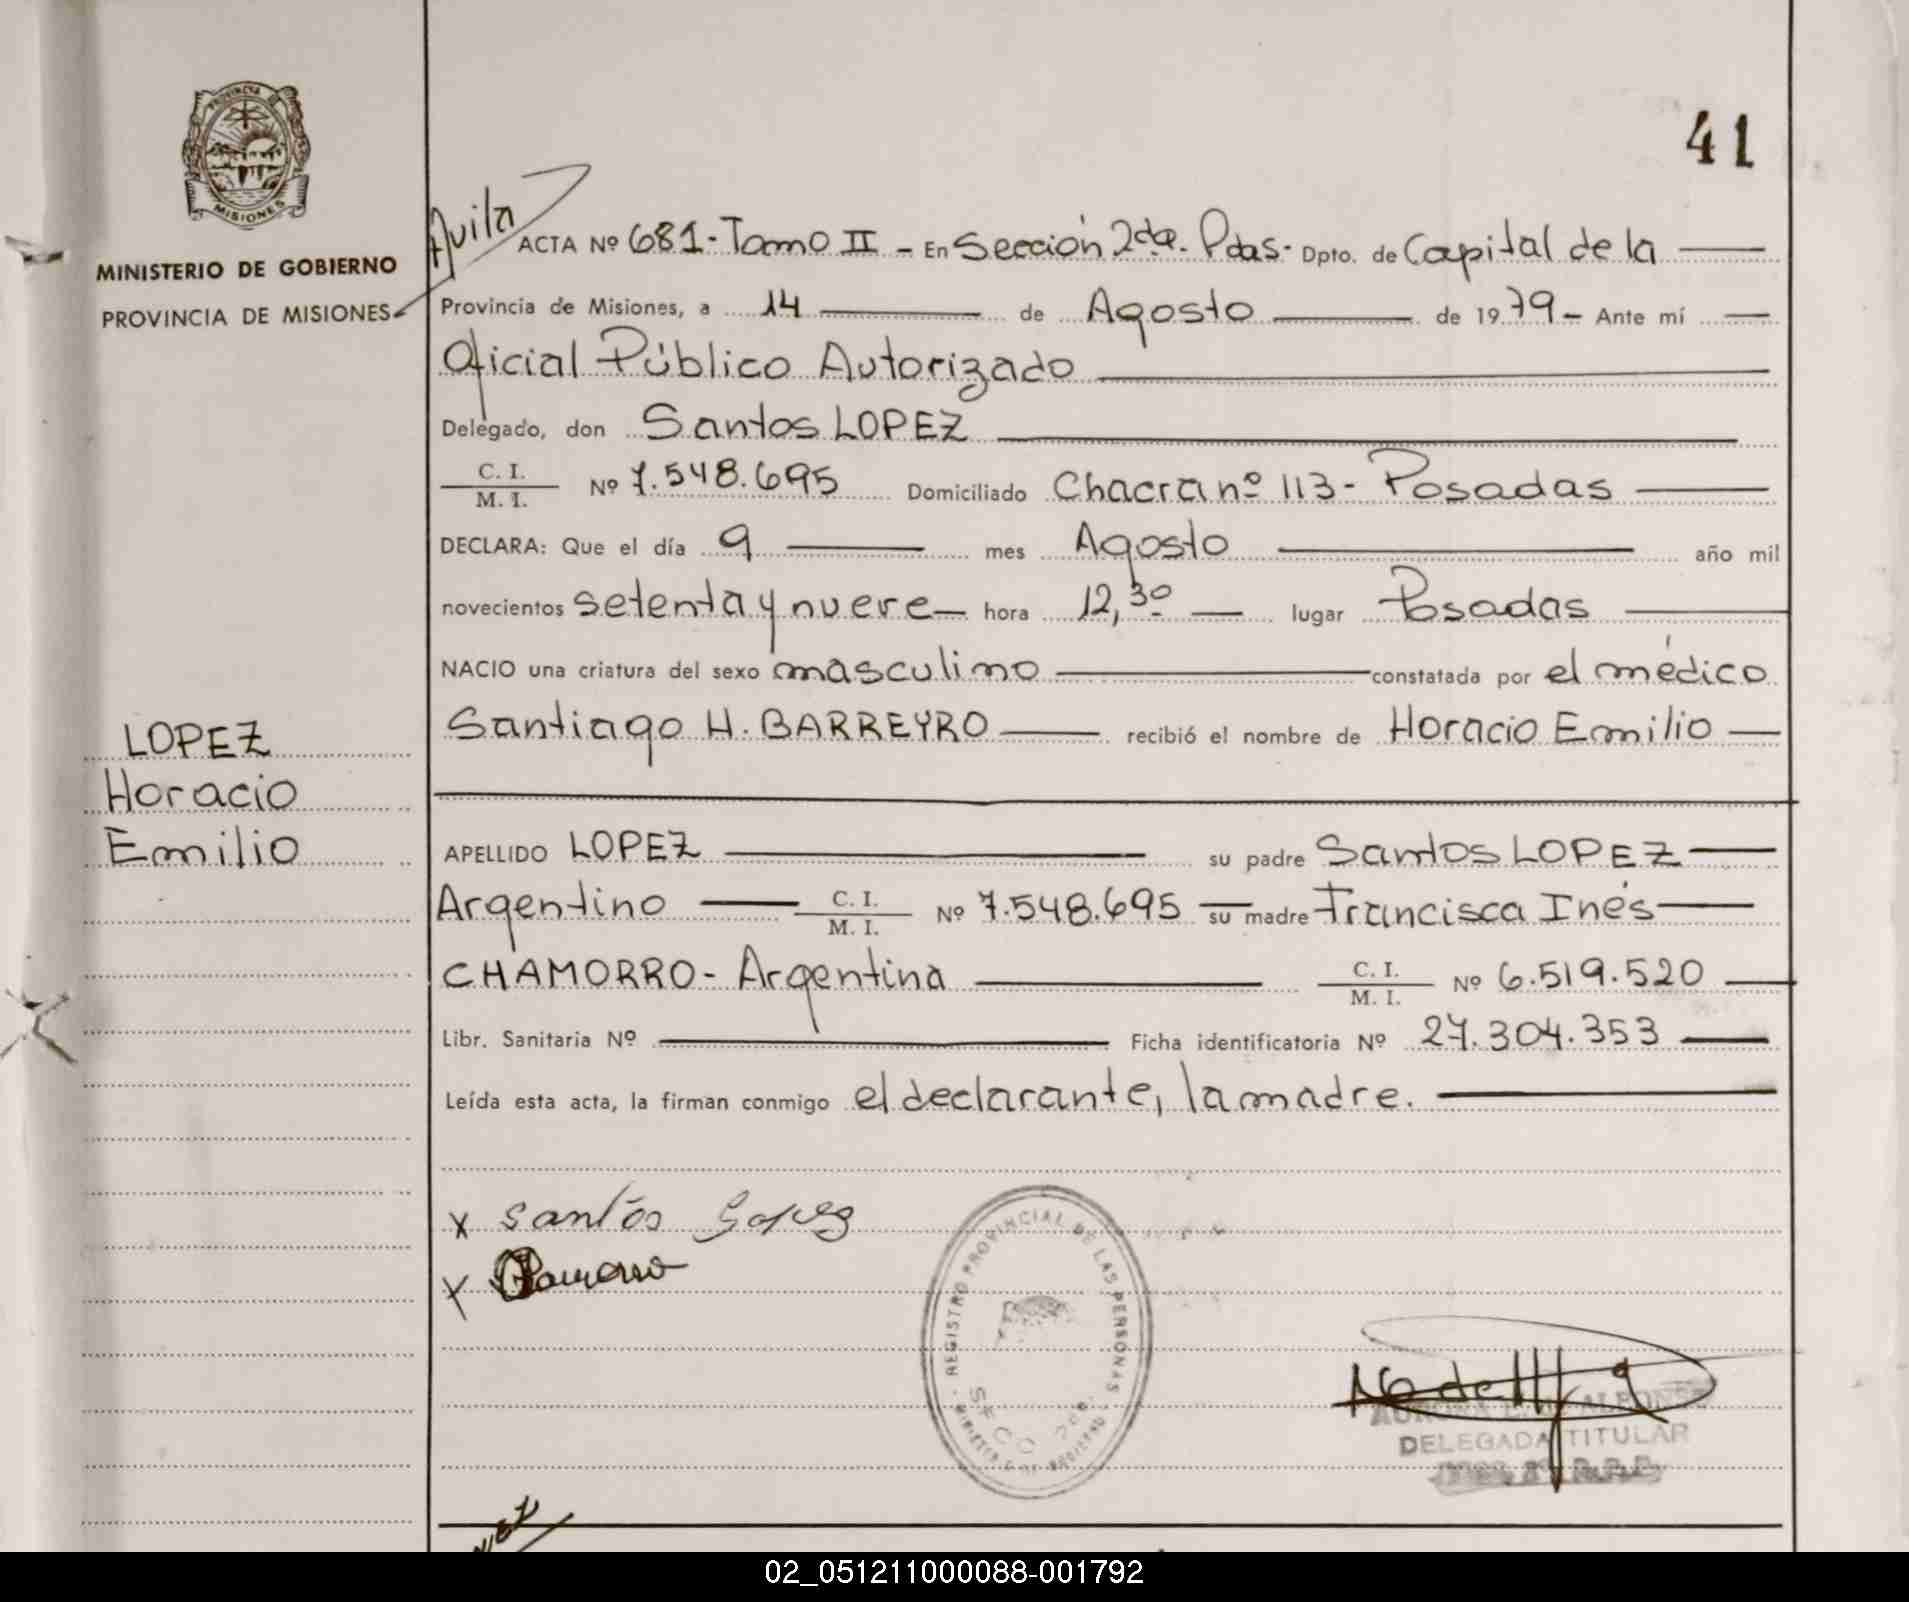 PROVINCIA DE
MISIONES
MINISTERIO DE GOBIERNO
PROVINCIA DE MISIONES
LOPEZ
Horacio
Emilio
41
Avila
ACTA Nº 681-Tomo II - En Sección 2da. Pdas- Dpto. de Capital de la
Provincia de Misiones, a 14 de Agosto de 1979- Ante mí
Oficial Público Autorizado
Delegado, don Santos LOPEZ
C. I.
M. I. Nº 7.548.695 Domiciliado Chacra nº 113- Posadas
DECLARA: Que el día 9 mes Agosto año mil
novecientos setenta y nueve hora 12,30 lugar Posadas
NACIO una criatura del sexo masculino constatada por el médico
Santiago H. BARREYRO recibió el nombre de Horacio Emilio
APELLIDO LOPEZ su padre Santos LOPEZ
Argentino C. I.
M. I. Nº 7.548.695 su madre Francisca Inés
CHAMORRO- Argentina C. I.
M. I. Nº 6.519.520
Libr. Sanitaria Nº Ficha identificatoria Nº 27.304.353
Leída esta acta, la firman conmigo el declarante, la madre.
x Santos Lopez
x
REGISTRO PROVINCIAL DE LAS PERSONAS
SECC 2da.
AURORA ALFONSO
DELEGADA TITULAR
02_051211000088-001792